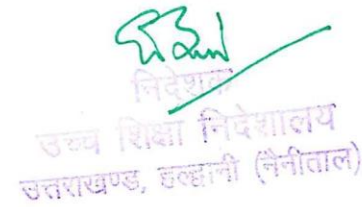 निदेशक
उच्च शिक्षा निदेशालय
उत्तराखण्ड, हल्द्वानी (नैनीताल)